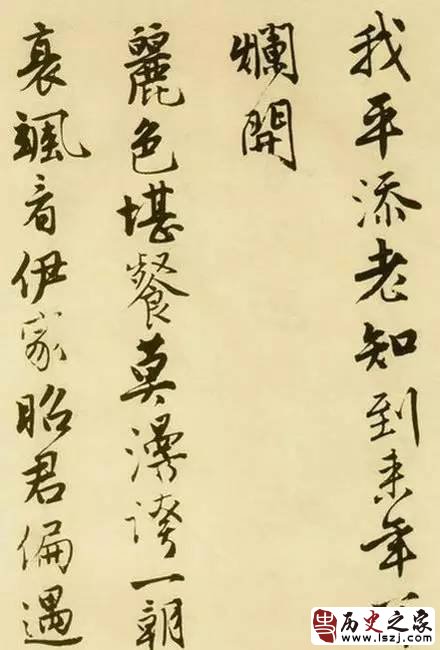 我平添老知到来年
爛開
麗色堪餐莫漫誇一朝
衰颯看伊家昭君偏遇
历史之家
www.lszj.com